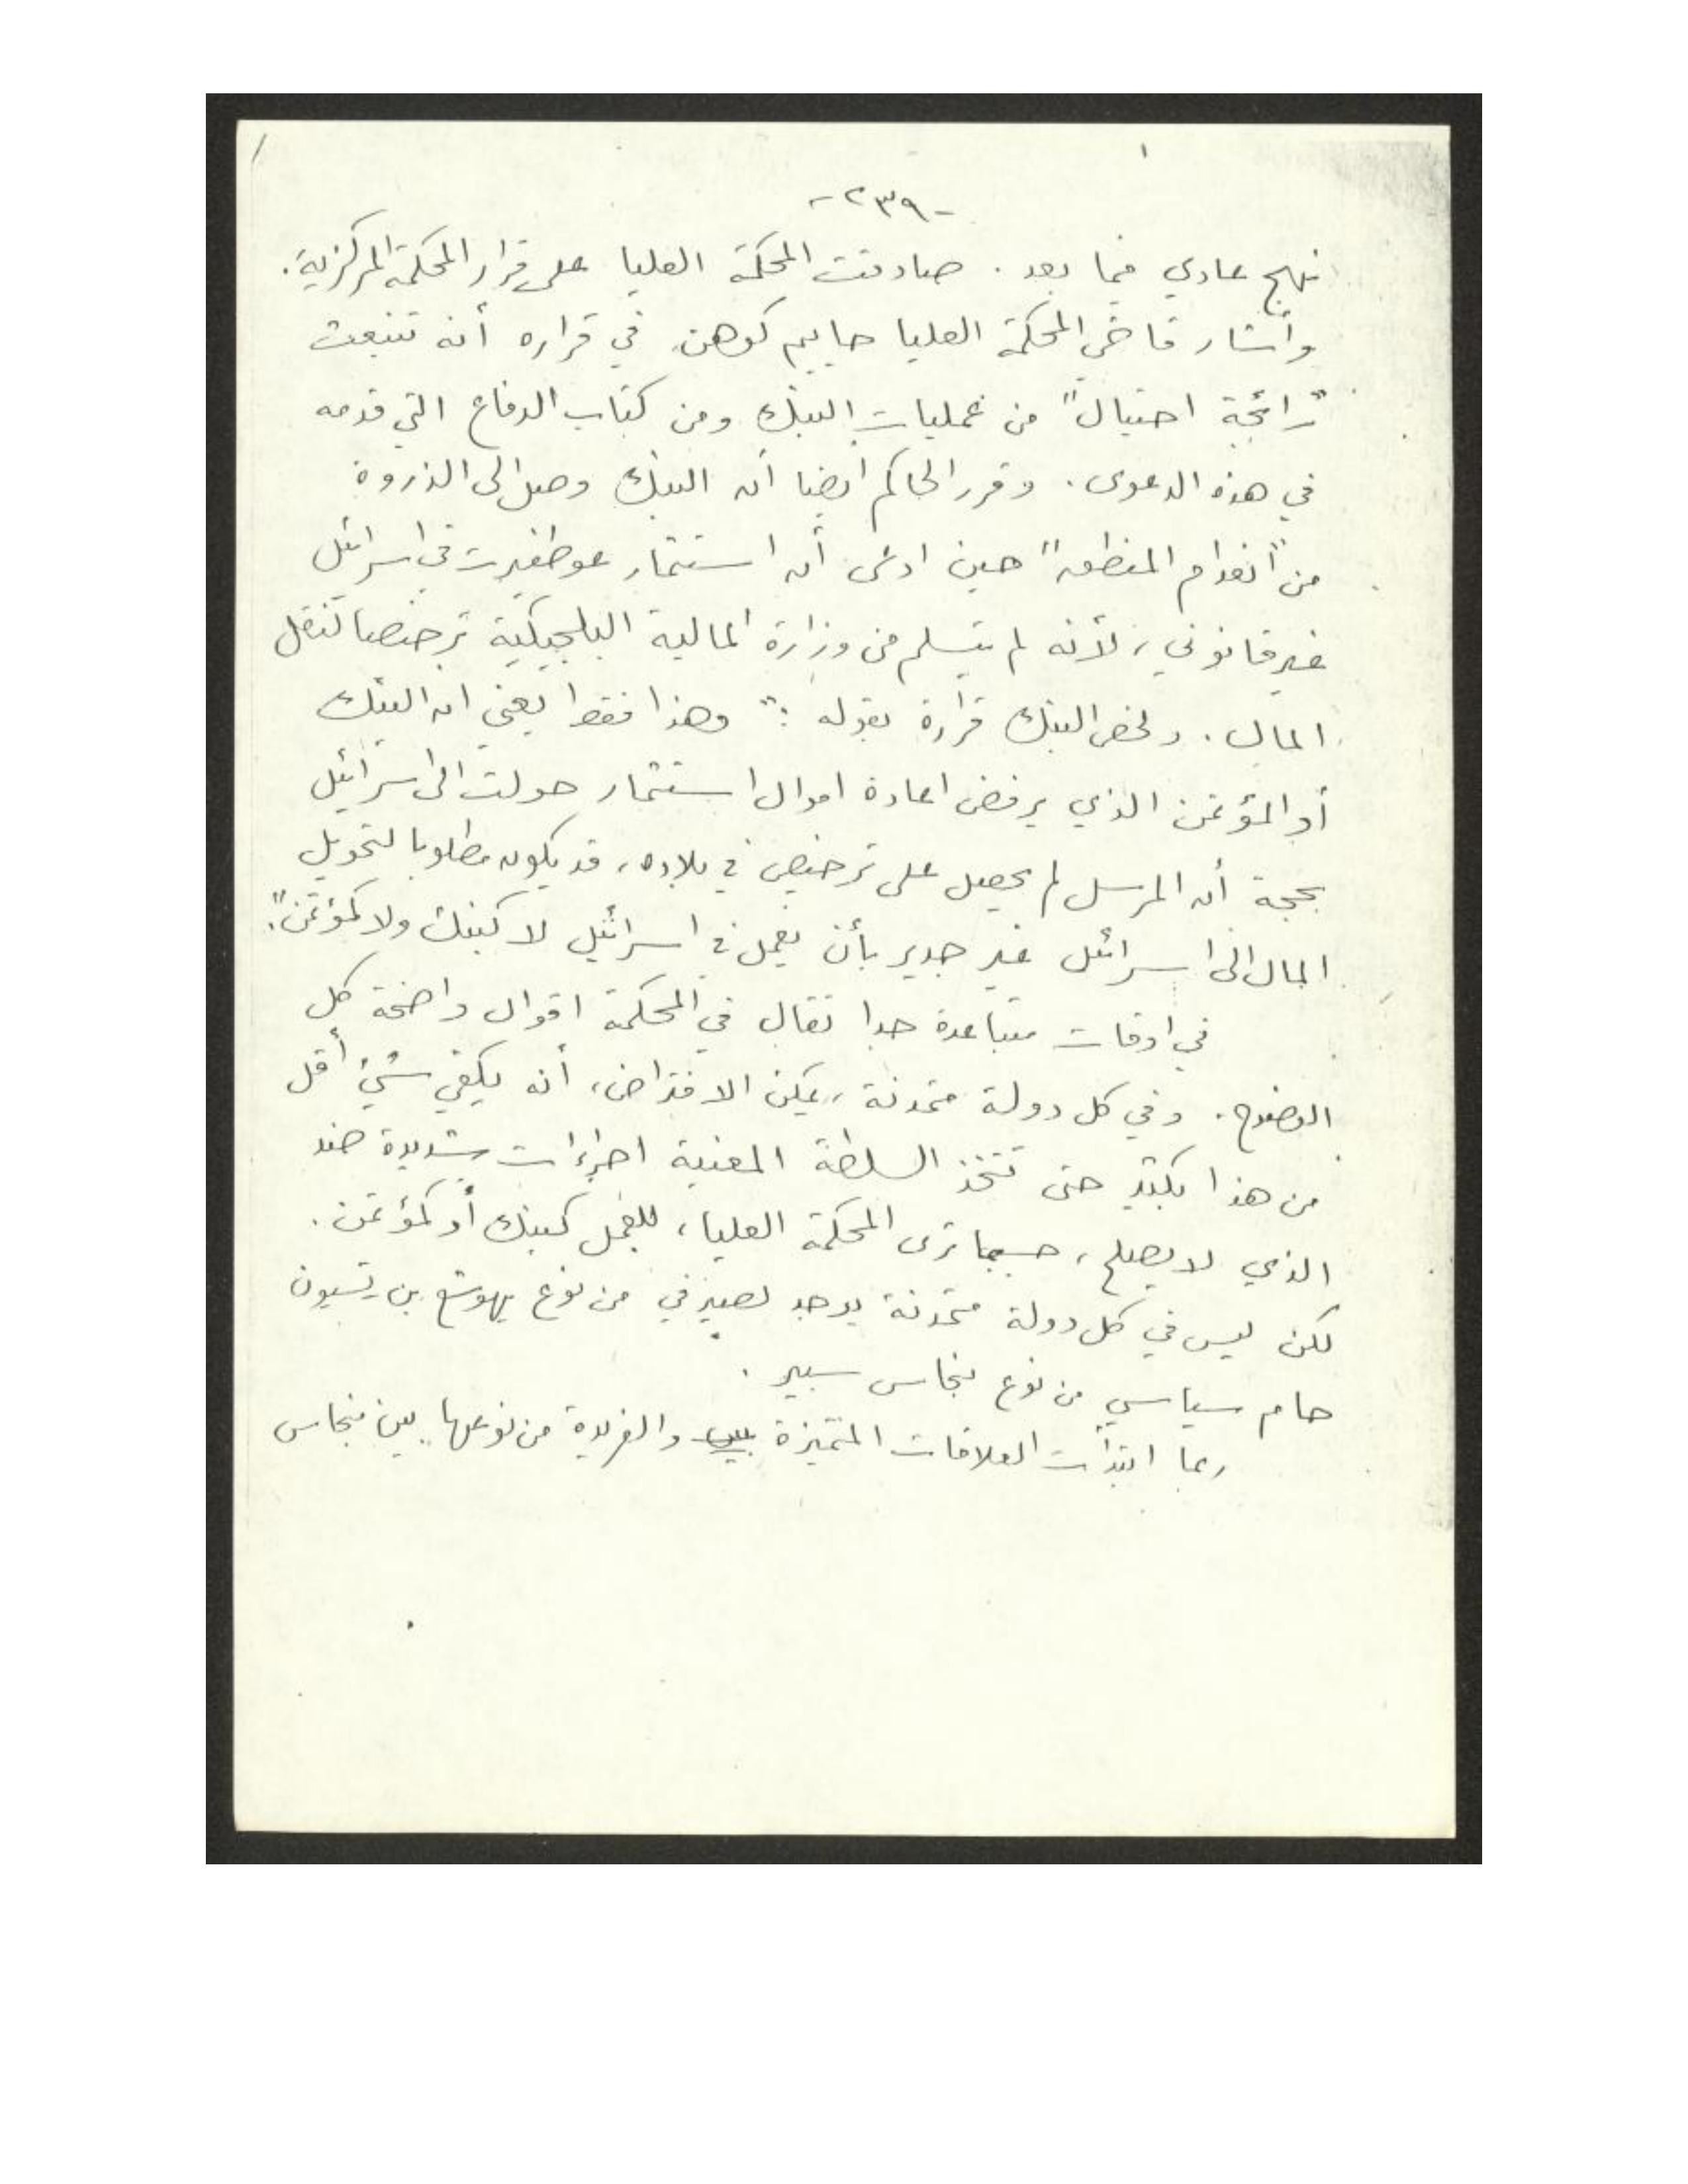 -٢٣٩-
نهج عادي فيما بعد . صادقت المحكمة العليا على قرار المحكمة المركزية .
وأشار قاضي المحكمة العليا حاييم كوهن في قراره أنه تنبعث
"رائحة احتيال" من عمليات البنك ومن كتاب الدفاع التي قدمه
في هذه الدعوى . وقرر الحاكم أيضا أن البنك وصل الى الذروة
من "انعدام المنطق" حين ادعى أن استثمار في اسرائيل
غير قانوني ، لأنه لم يتسلم من وزارة المالية البلجيكية ترخيصا لنقل
المال . ولخص البنك قراره بقوله : " وهذا فقط يعني ان البنك
أو المؤتمن الذي يرفض اعادة اموال استثمار حولت الى اسرائيل
بحجة أن المرسل لم يحصل على ترخيص في بلاده ، قد يكون مطلوبا لتحويل
المال الى اسرائيل غير جدير بأن يعمل في اسرائيل لا كبنك ولا كمؤتمن ".
في اوقات متباعدة جدا تقال في المحكمة اقوال واضحة كل
الوضوح . وفي كل دولة متمدنة ، يمكن الافتراض ، أنه يكفي شيء أقل
من هذا بكثير حتى تتخذ السلطة المعنية اجراءات شديدة ضد
الذي لا يصلح ، حسبما ترى المحكمة العليا ، للعمل كبنك أو كمؤتمن .
لكن ليس في كل دولة متمدنة يوجد لصيرفي من نوع يهوشع بن تسيون
حام سياسي من نوع بنحاس سبير .
ربما ابتدأت العلاقات المتميزة والفريدة من نوعها بين بنحاس